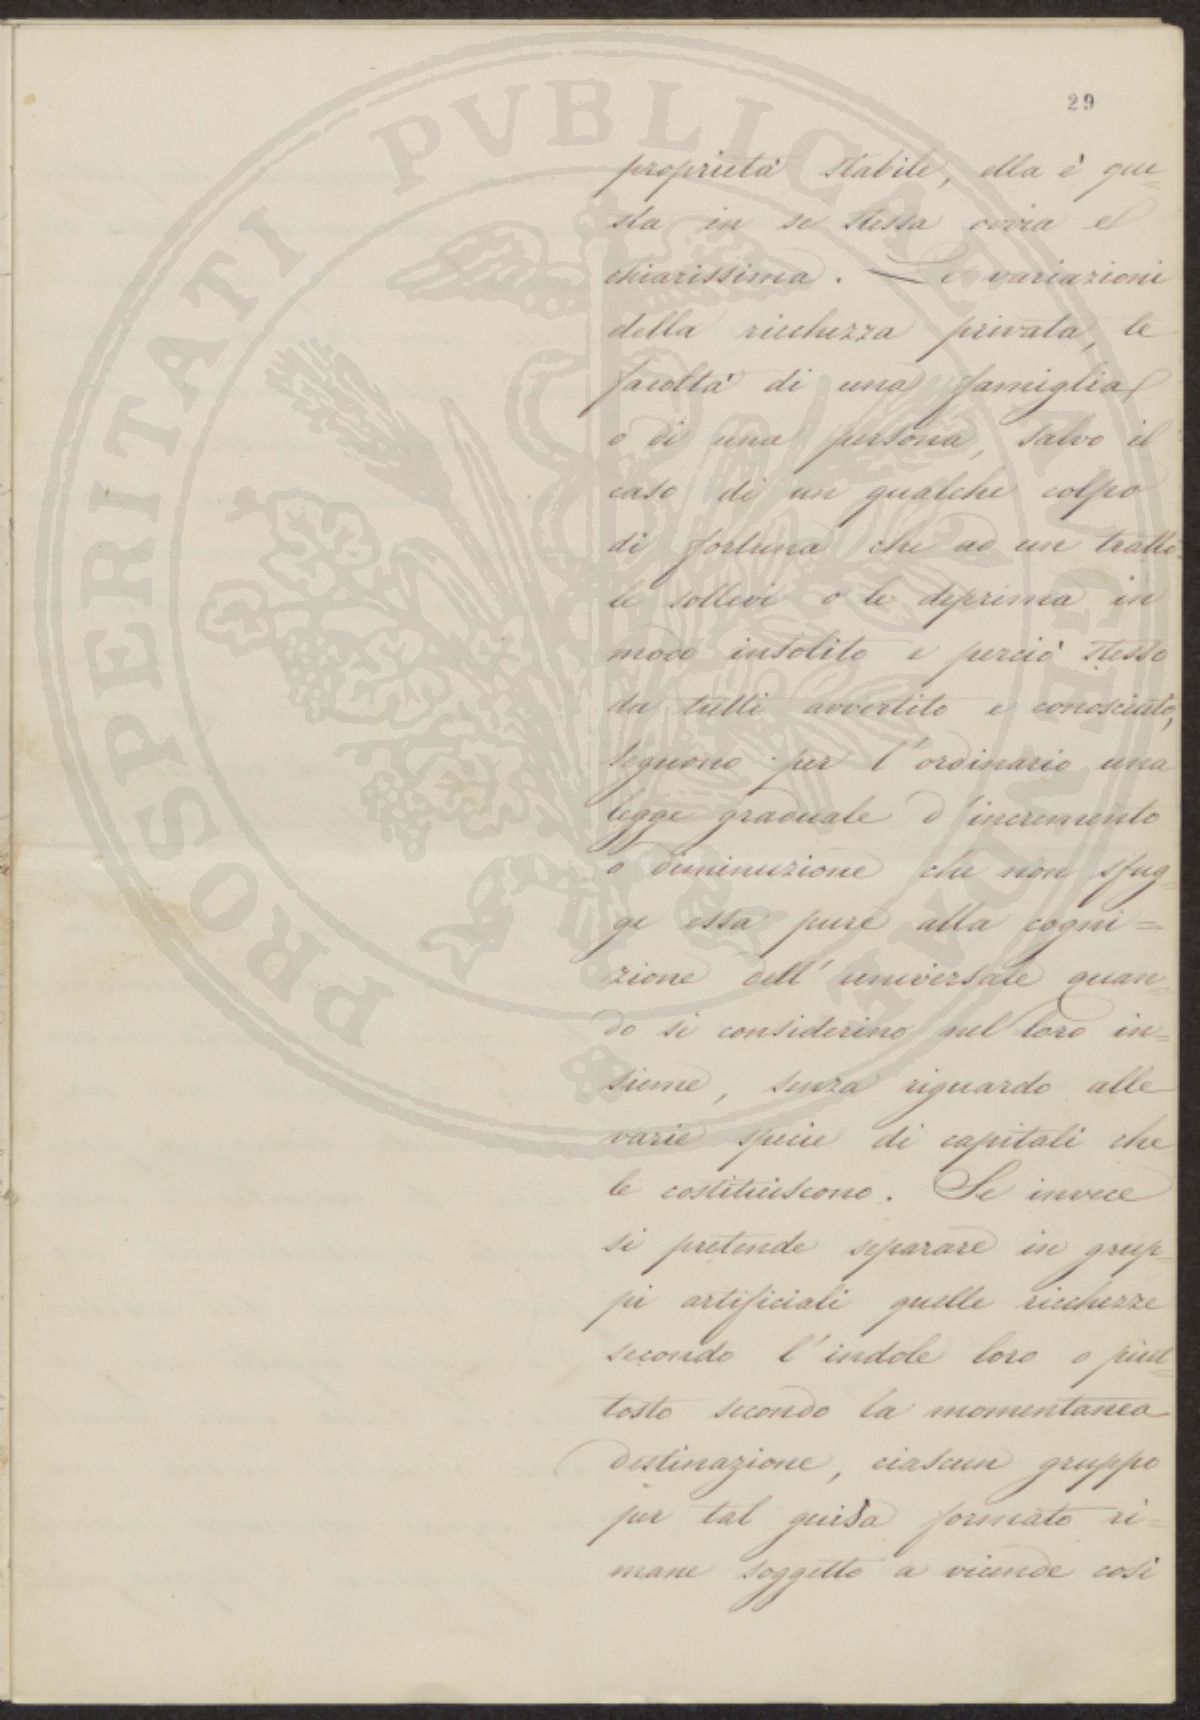 29
proprietà stabile, ella è que=
sta in se stessa ovvia e
chiarissima. — Le variazioni
della ricchezza privata, le
facoltà di una famiglia
o di una persona, salvo il
caso di un qualche colpo
di fortuna che ad un tratto
le sollevi o le deprima in
modo insolito e perciò stesso
da tutti avvertito e conosciuto,
seguono per l'ordinario una
legge graduale d'incremento
o diminuzione che non sfug=
ge essa pure alla cogni=
zione dell'universale quan=
do si considerino nel loro in=
sieme, senza riguardo alle
varie specie di capitali che
le costituiscono. Se invece
si pretende separare in grup=
pi artificiali quelle ricchezze
secondo l'indole loro o piut=
tosto secondo la momentanea
destinazione, ciascun gruppo
per tal guisa formato ri=
mane soggetto a vicende così
PROSPERITATI PVBLICAE AVGENDAE